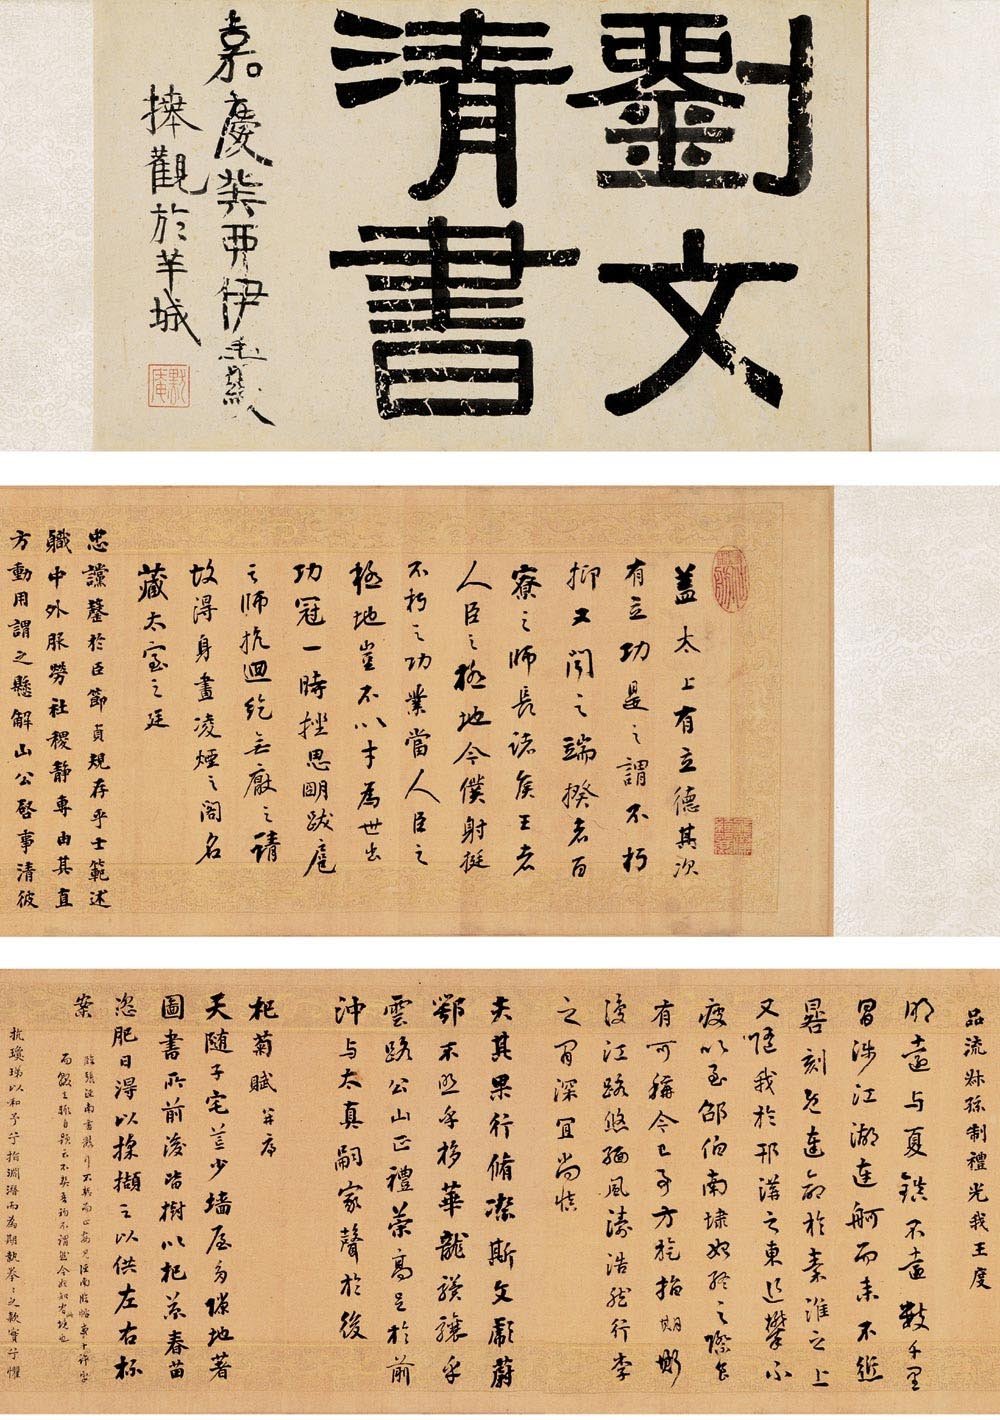 劉文
清書
嘉慶癸酉伊秉綬
捧觀於羊城
蓋太上有立德其次
有立功是之謂不朽
抑又聞之端揆者百
寮之師長諸侯王者
人臣之極地今僕射挺
不朽之功業當人臣之
極地豈不以才為世出
功冠一時挫思明跋扈
之師抗迴紇無厭之請
故得身畫凌煙之閣名
藏太室之廷
忠讜罄於臣節貞規存乎士範述
職中外服勞社稷靜專由其直
方動用謂之懸解山公啓事清彼
品流叔孫制禮光我王度
明遠与夏鎮不遠數千里
冒涉江湖連舸而来不愆
晷刻於秦淮之上
又隨我於邗溝之東追攀不
疲以至邵伯南埭始終之際
有可稱今已方旋指期斯
復江路悠緬風濤浩然行李
之間深宜尚慎
夫其果行脩潔斯文彪蔚
鄂不照乎移華龍驥驤乎
雲路公山正禮榮高足於前
沖与太真嗣家聲於後
杞菊賦并序
天隨子宅荒少墻屋多隙地著
圖書所前後皆樹以杞菊春苗
恣肥日得以採擷之以供左右杯
案